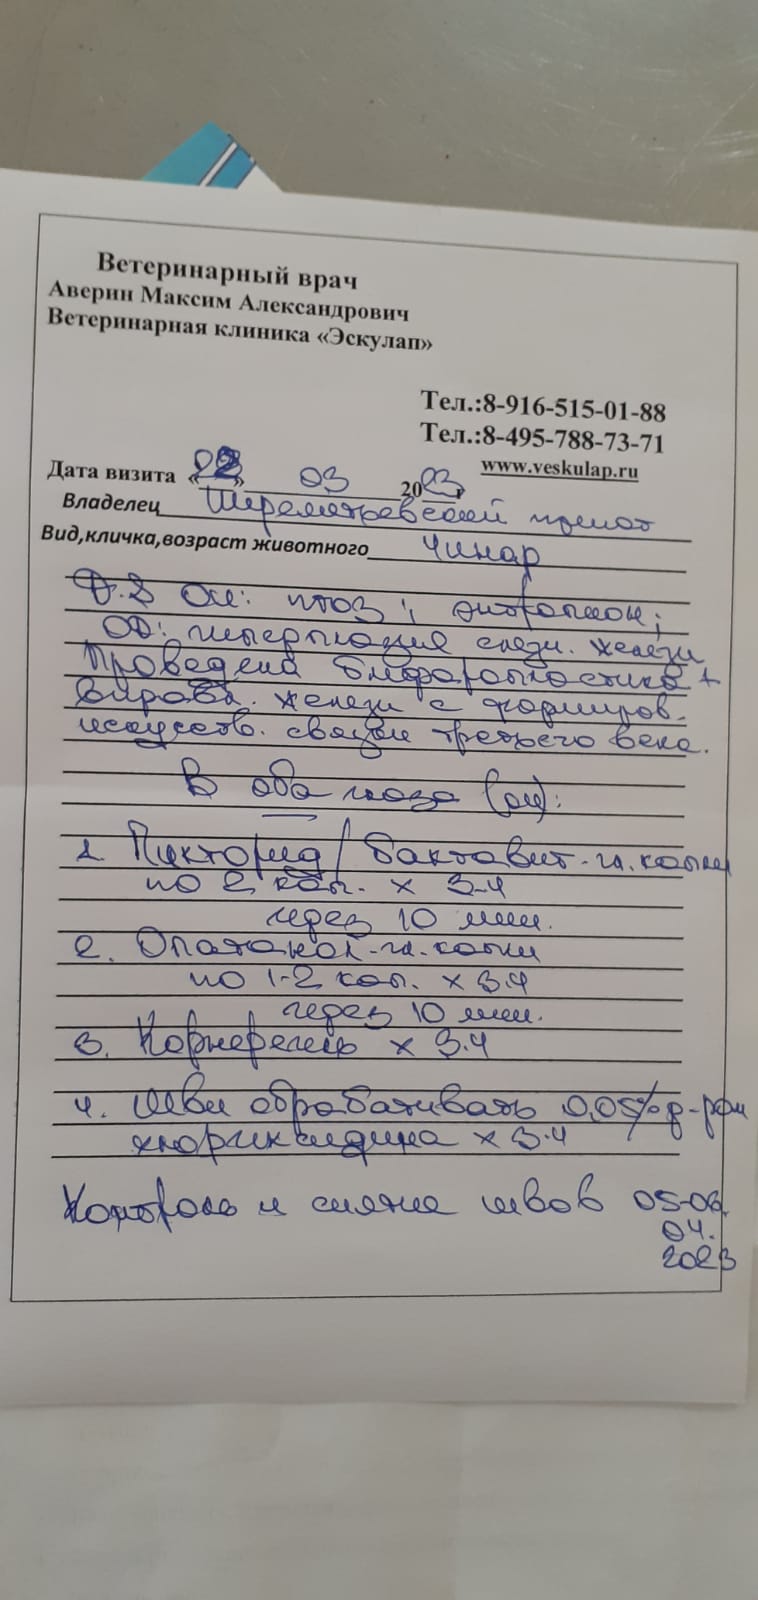 Ветеринарный врач
Аверин Максим Александрович
Ветеринарная клиника «Эскулап»
Тел.:8-916-515-01-88
Тел.:8-495-788-73-71
www.veskulap.ru
Дата визита «22» 03 2023г
Владелец Шереметьевский приют
Вид,кличка,возраст животного Чинар
D.S OU: птоз; энтропион;
OD: гиперплазия слезн. железы
Проведена блефаропластика +
вправл. железы с формиров.
искусств. связки третьего века.
В оба глаза (OU):
1. / Бактавит-гл. капли
по 2 кап. х 3.Ч
через 10 мин.
2. Опатанол-гл. капли
по 1-2 кап. х 3.Ч
через 10 мин.
3. Корнерегель х 3.Ч
4. Швы обрабатывать 0,05% р-ром
хлоргексидина х 3.Ч
Контроль и снятие швов 05-06.
04.
2023